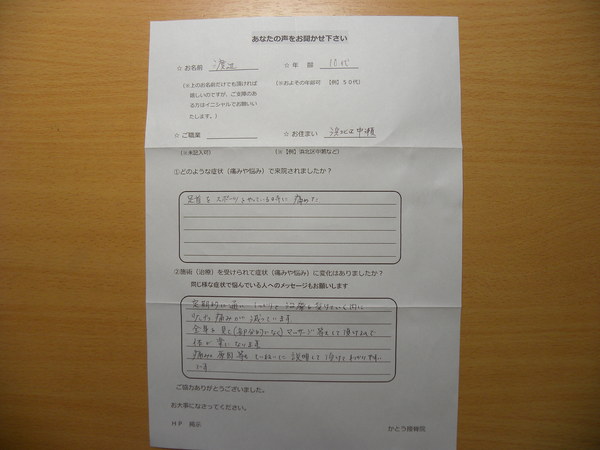 あなたの声をお聞かせ下さい
☆ お名前 渡辺 ☆ 年 齢 10代
(※上のお名前だけでも頂ければ (※おおよその年齢可 【例】50代)
嬉しいのですが、ご支障のあ
る方はイニシャルでお願いい
たします。)
☆ ご職業 ☆ お住まい 浜北区中瀬
(※未記入可) (※【例】浜北区中瀬など)
①どのような症状(痛みや悩み)で来院されましたか?
足首をスポーツをやっている時に痛めた
②施術(治療)を受けられて症状(痛みや悩み)に変化はありましたか?
同じ様な症状で悩んでいる人へのメッセージもお願いします
定期的に通い、しっかりと治療を受けていく内に
少しずつ痛みが減っています
全身を見て(部分的でなく)マッサージ等もして頂けるので
体が楽になります
痛みの原因等もていねいに説明して頂けてわかりやすい
です
ご協力ありがとうございました。
お大事になさってください。
HP 掲示 かとう接骨院